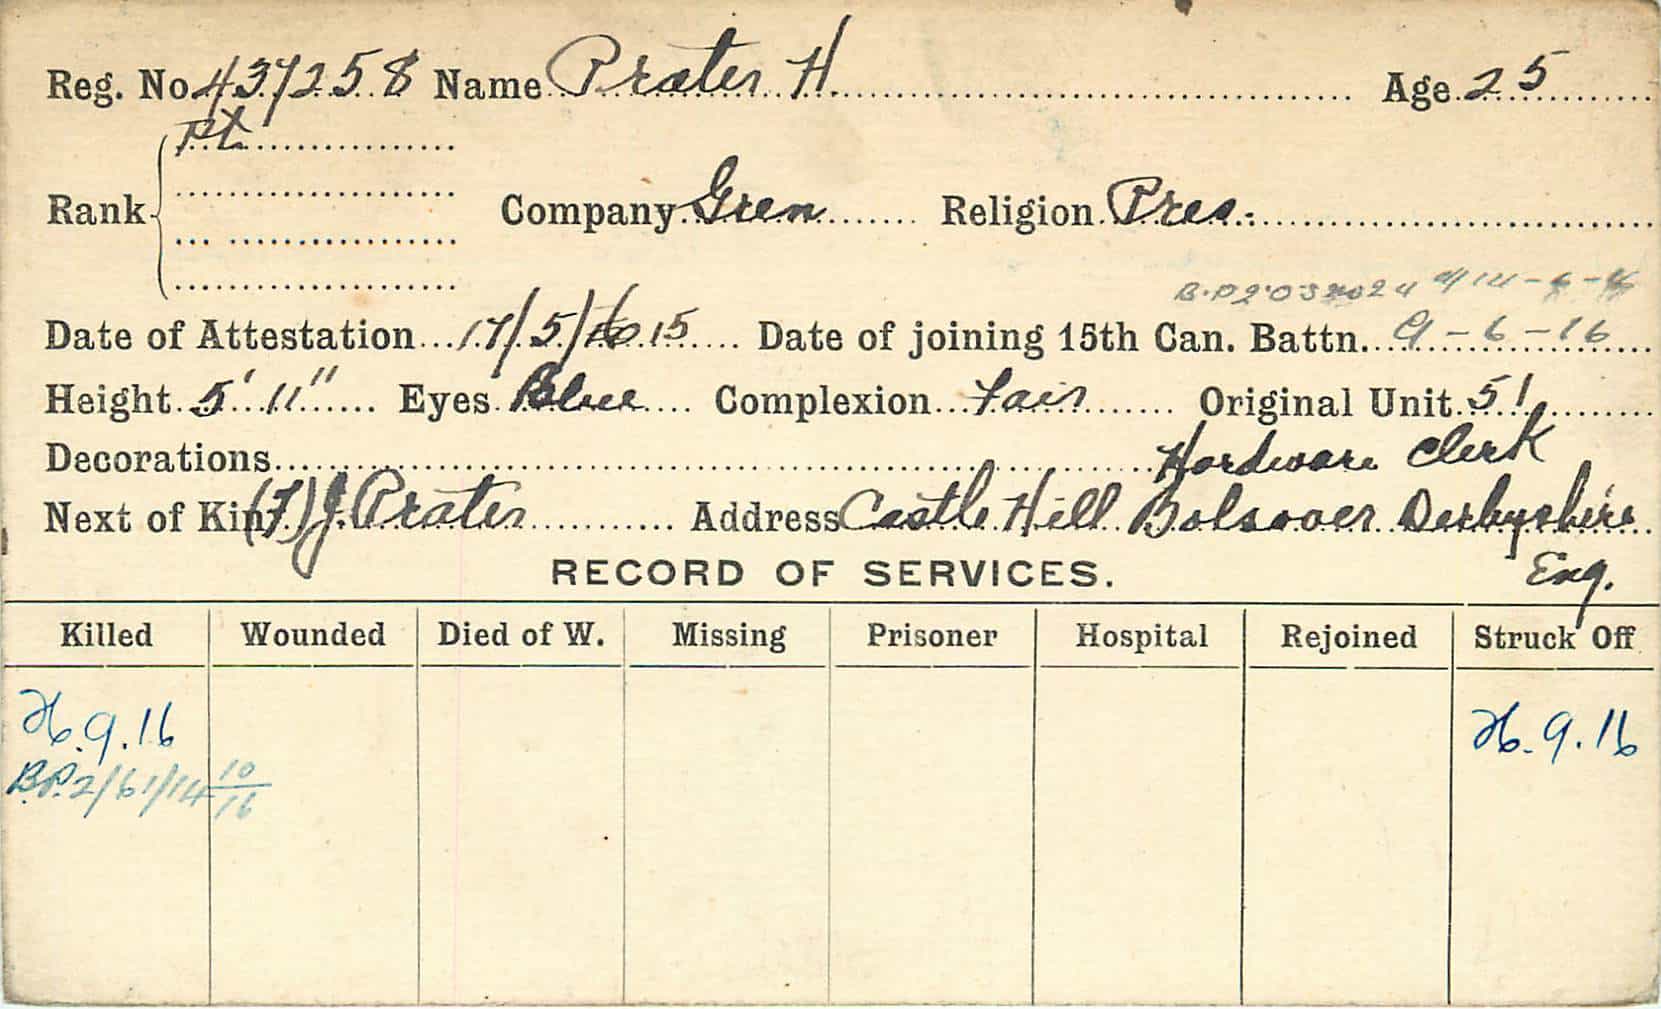 Reg. No. 437258 Name Prater H. Age 25
Pt.
Rank Company Gren Religion Pres.
Date of Attestation 17/5/15 Date of joining 15th Can. Battn. 9-6-16
Height 5' 11" Eyes Blue Complexion Fair Original Unit 51
Decorations Hardware Clerk
Next of Kin (F) J. Prater Address Castle Hill Bolsover Derbyshire
Eng.
RECORD OF SERVICES.
Killed Wounded Died of W. Missing Prisoner Hospital Rejoined Struck Off
26.9.16 26.9.16
B.P.2/61/14 10/16